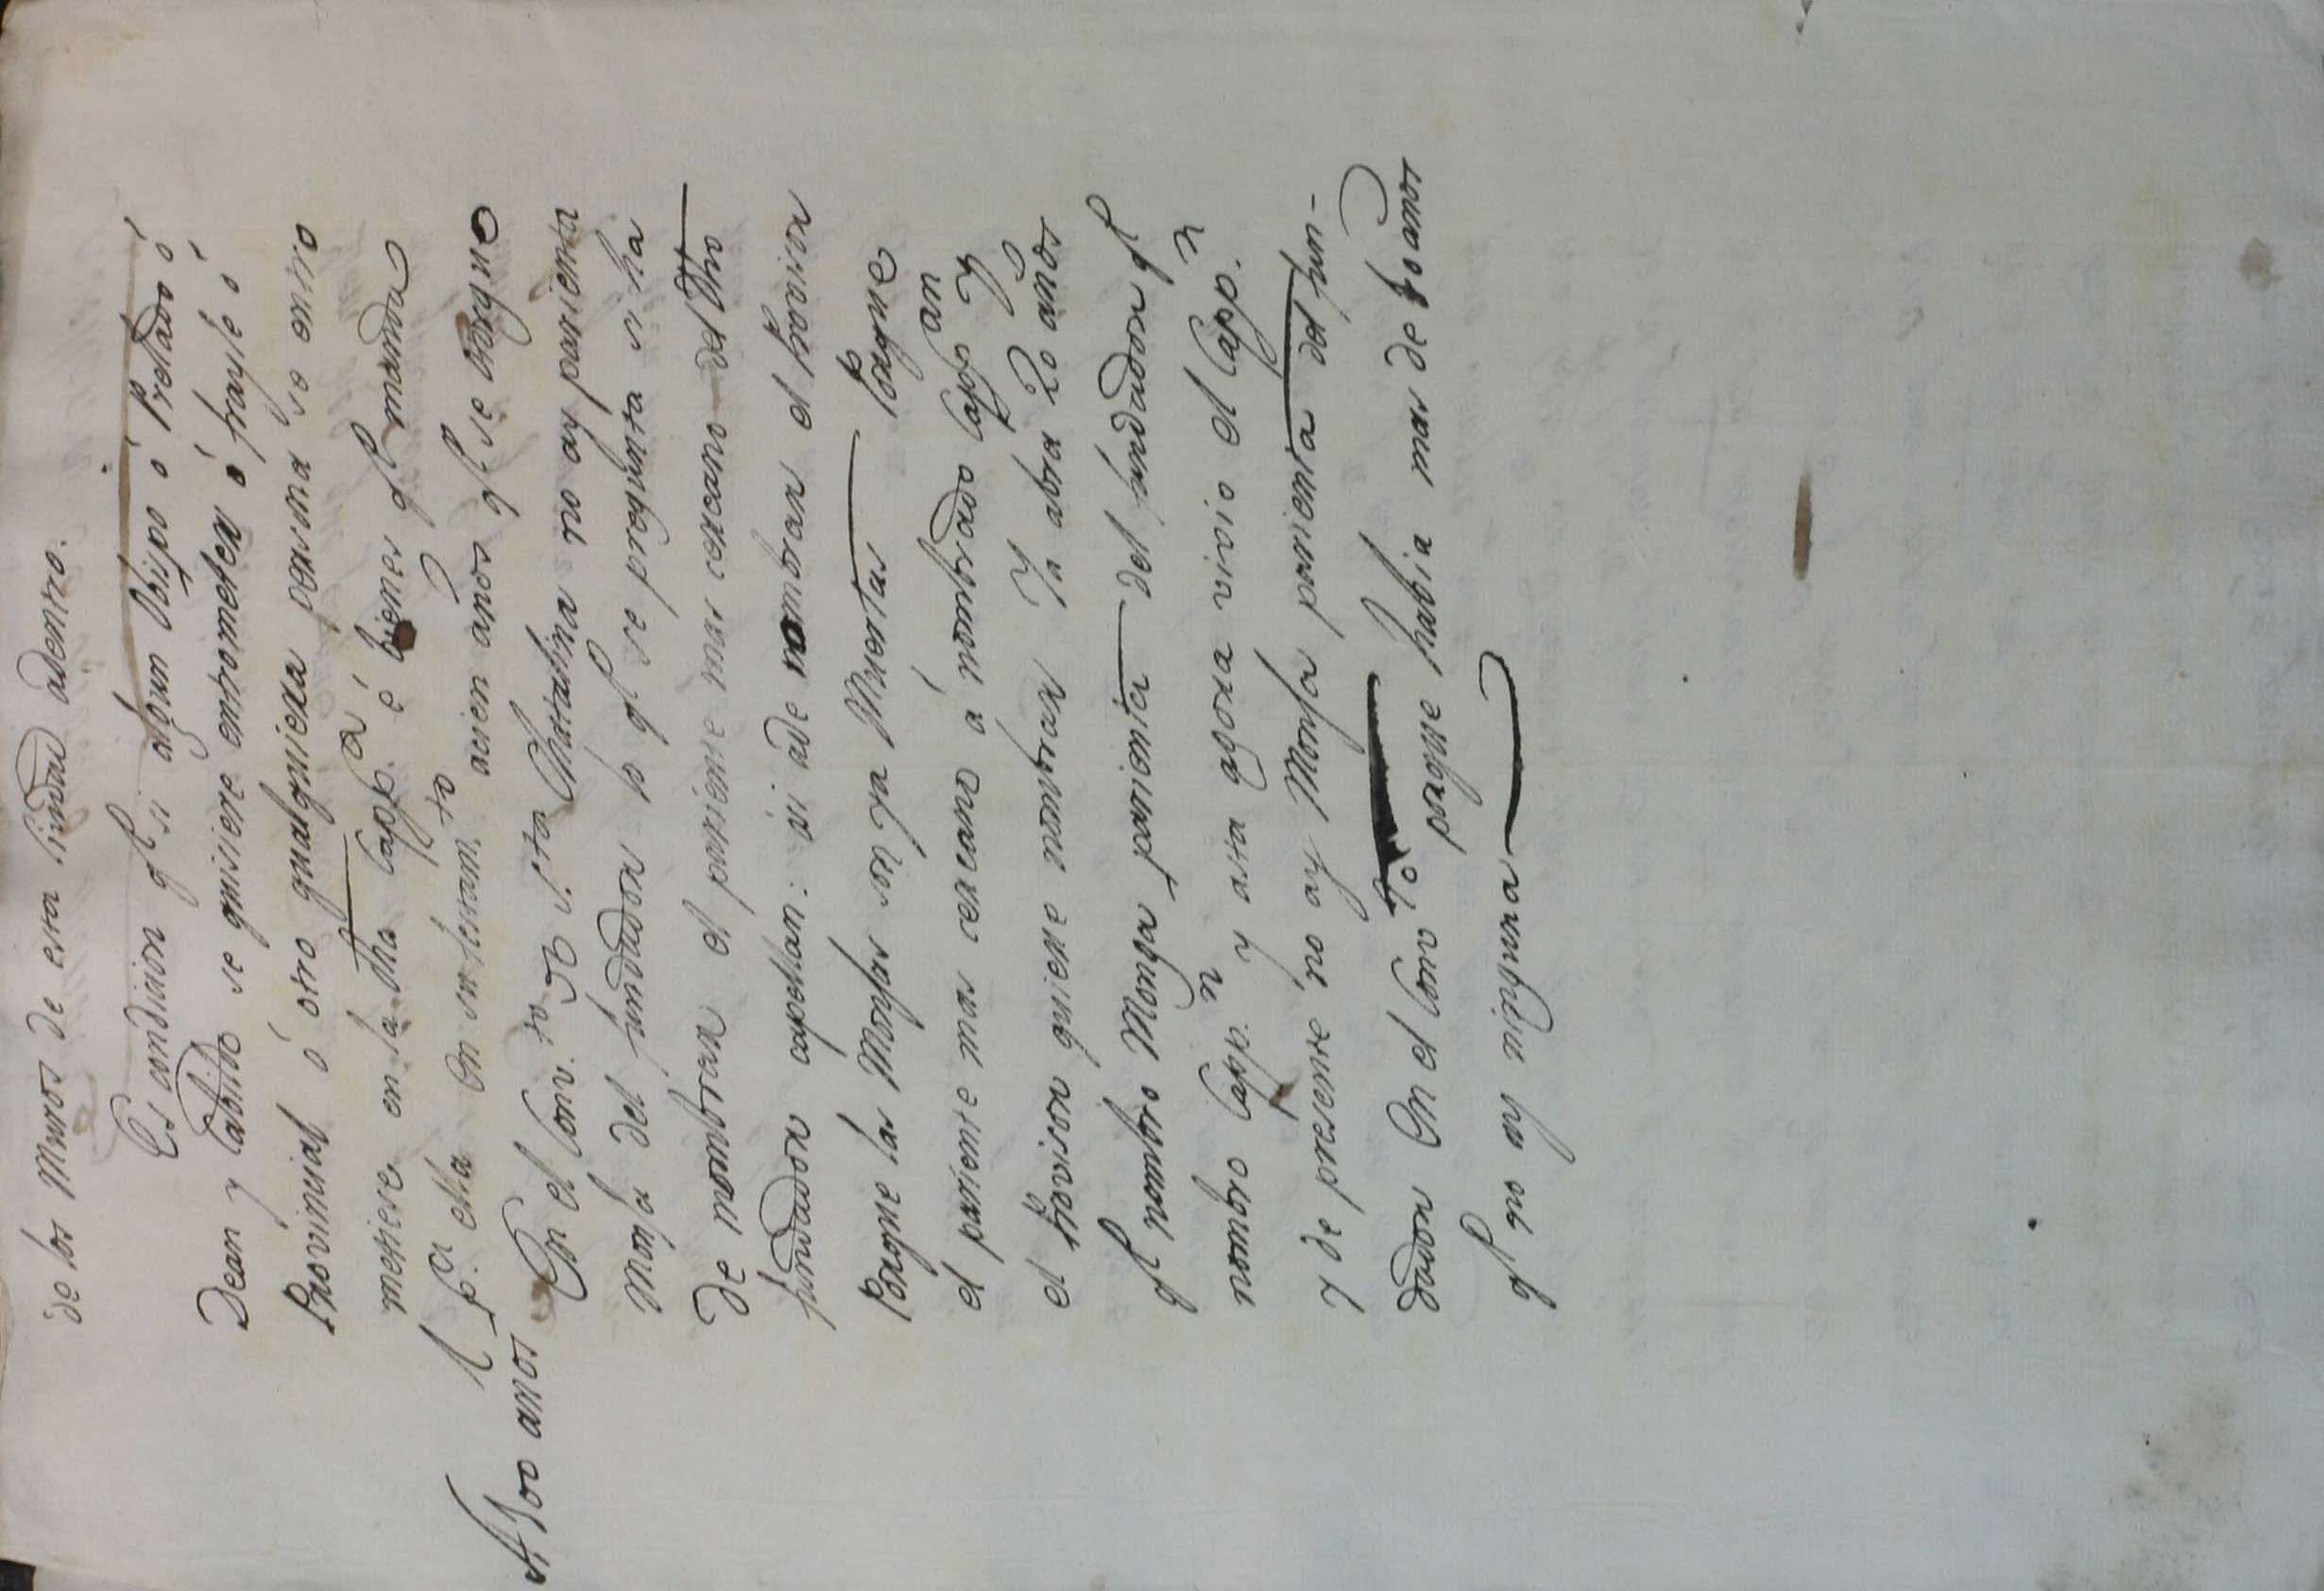 de los Muros de esta Ciudad adentro.
Es condicion q.e si algun Obispo ó Prelado ó
Dean y Cabildo se quisiere entrometer ó frayle ó
Provincial ó otro qualquiera persona se entro
metiese en la dha Capp.a é bienes q.e manda
p.a ella en su testam.to acien años q.e se otorgue
A 500 años
En el Conv.to de S.ta Chatalina no ay parienta
Monja del fundador lo q.e se pregunta si ha
de nombrar el pariente mas cercano del dho
fundador capellan: ói ade nombrar el Provisor
Porque las Monjas son ya Muertas Porque
el pariente mas cercano á nombrado Capp.an y
el Provisor quiere nombrar Ya abra 20 años
q.e nombro Monja parienta del fundador q.e
nombro Capp.n y asta agora vivio el Capp.n
y de presente no ay Monja parienta del fun-
dador En el Conv.to porque habia mas de 80 años
q.e no ay ninguna